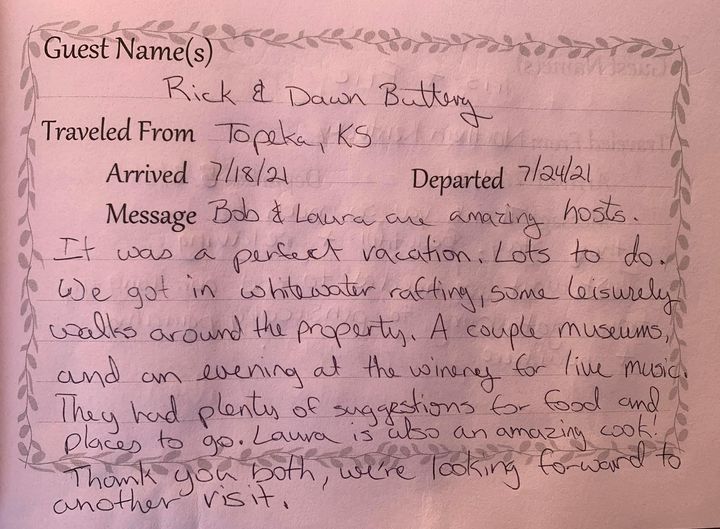 Guest Name(s)
Rick & Dawn Buttery
Traveled From Topeka, KS
Arrived 7/18/21 Departed 7/24/21
Message Bob & Laura are amazing hosts.
It was a perfect vacation. Lots to do.
We got in whitewater rafting, some leisurely
walks around the property. A couple museums,
and an evening at the winerey for live music.
They had plenty of suggestions for food and
places to go. Laura is also an amazing cook!
Thank you both, we're looking forward to
another visit.